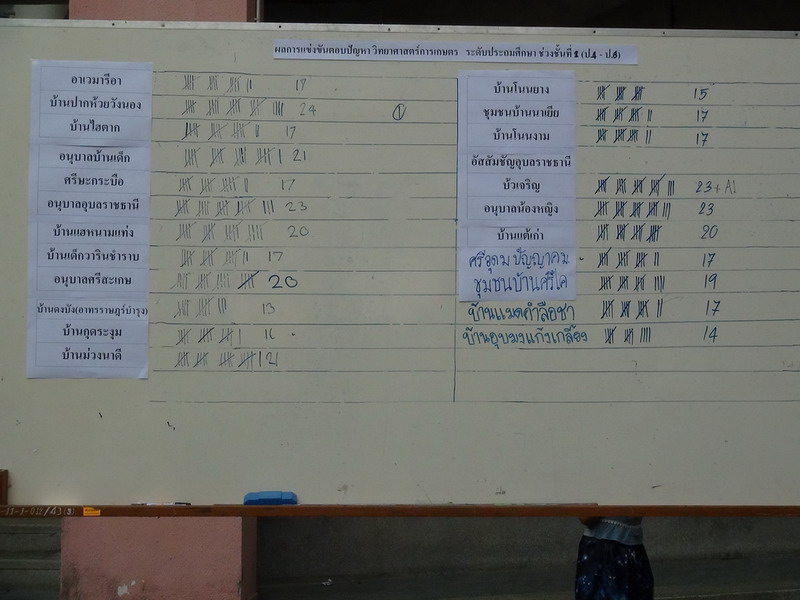 ผลการแข่งขันตอบปัญหา วิทยาศาสตร์การเกษตร ระดับประถมศึกษา ช่วงชั้นที่ 2 (ป.4 - ป.6)
อาเวมารีอา 17
บ้านปากห้วยวังนอง 24 1
บ้านไฮตาก 17
อนุบาลบ้านเด็ก 21
ศรีษะกระบือ 17
อนุบาลอุบลราชธานี 23
บ้านแฮหนามแท่ง 20
บ้านเด็กวารินชำราบ 17
อนุบาลศรีสะเกษ 20
บ้านดงบัง(อาทรราษฎร์บำรุง) 13
บ้านกุดระงุม 16
บ้านม่วงนาดี 21
บ้านโนนยาง 15
ชุมชนบ้านนาเยีย 17
บ้านโนนงาม 17
อัสสัมชัญอุบลราชธานี
บัวเจริญ 23 + A1
อนุบาลน้องหญิง 23
บ้านแต้เก่า 20
ศรีอุดมปัญญาคม 17
ชุมชนบ้านศรีไค 19
บ้านแมดคำลือชา 17
บ้านอุบมุงแก้งเกลี้ยง 14
-11-1-012/43(3)